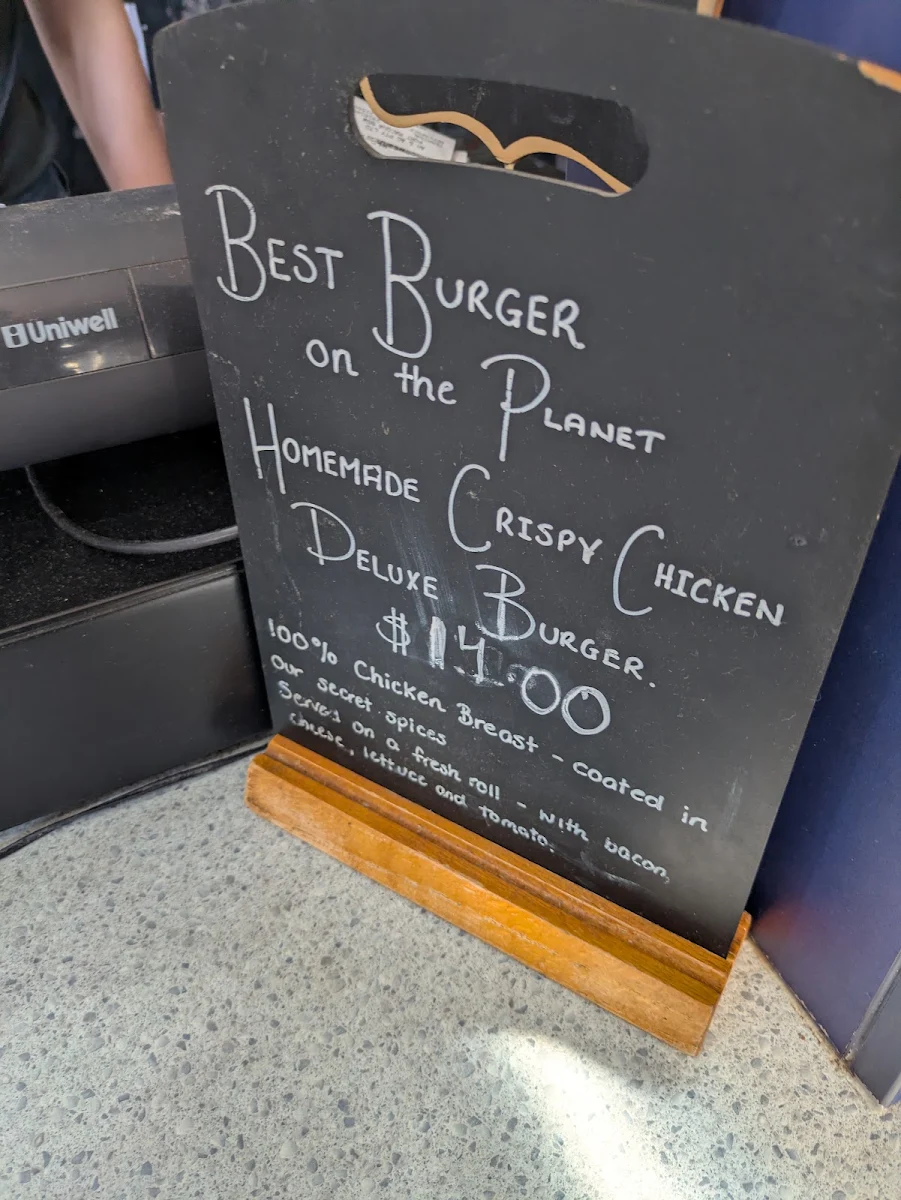 Uniwell
BEST BURGER
on the PLANET
HOMEMADE CRISPY CHICKEN
DELUXE BURGER.
$14.00
100% Chicken Breast - coated in
our secret spices
Served on a fresh roll - with bacon,
cheese, lettuce and tomato.